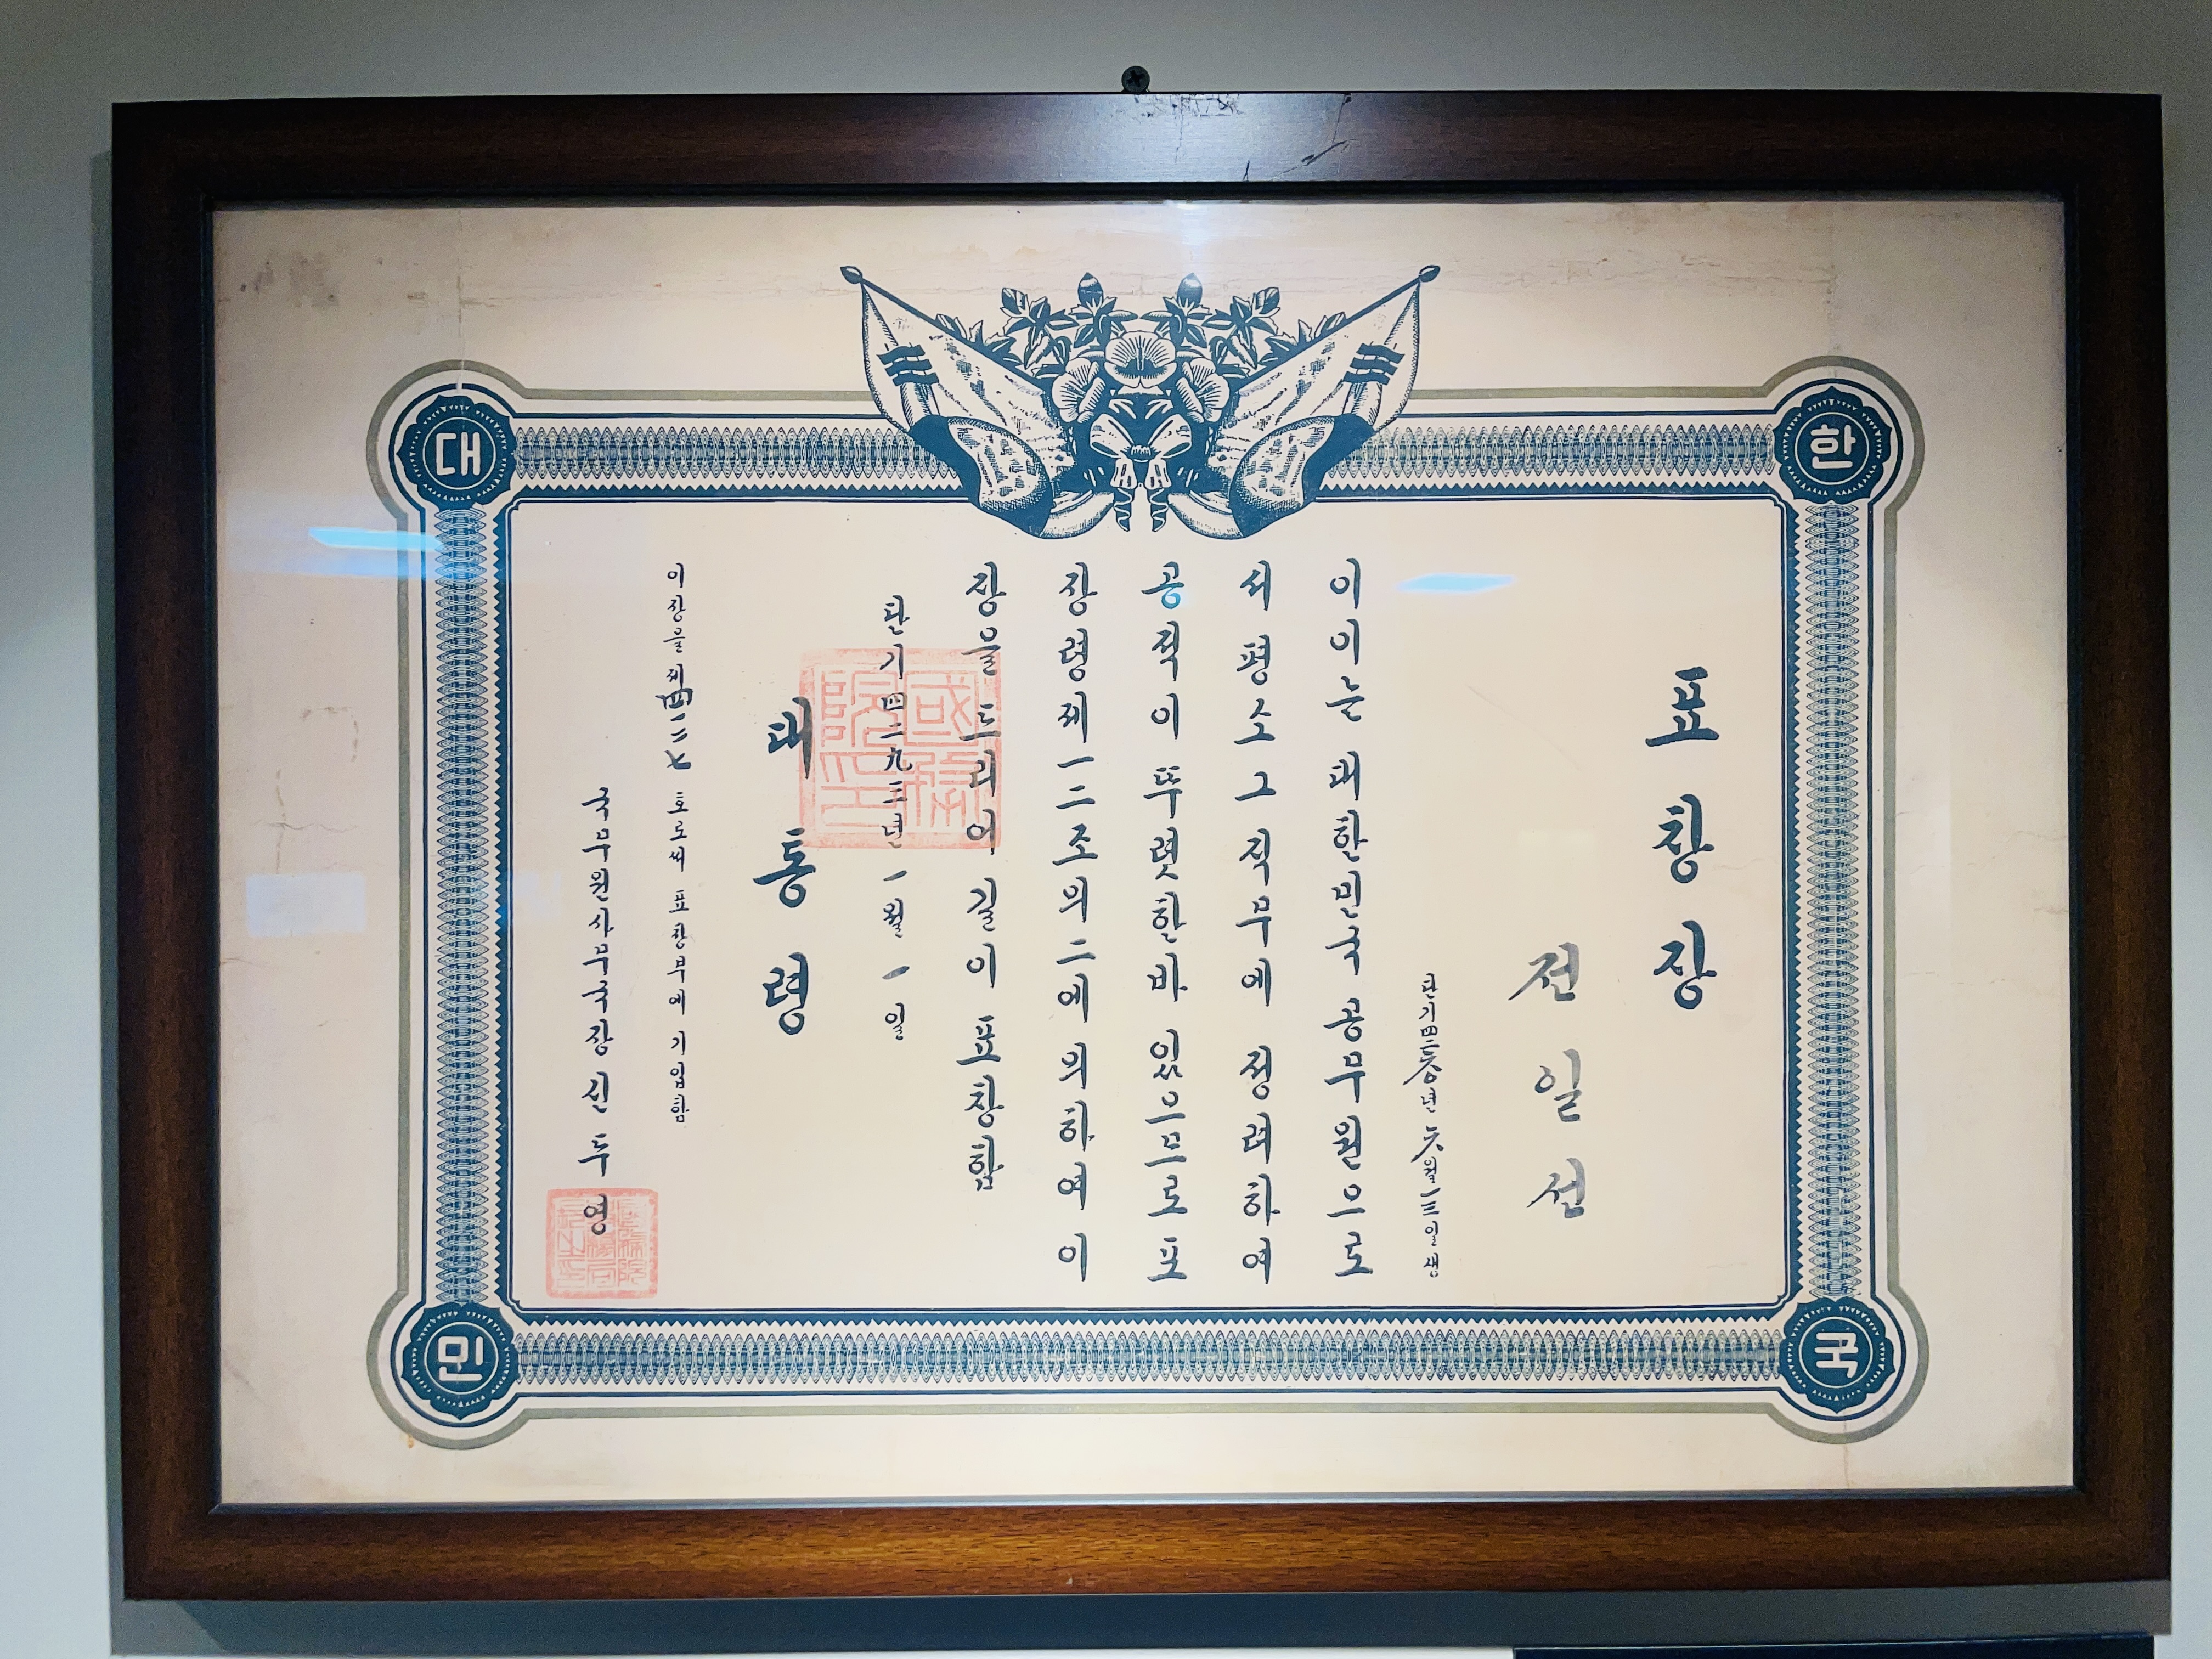 대한민국
표창장
전일선
이이는 대한민국 공무원으로
서 평소 그 직무에 정려하여
공적이 뚜렷한바 있으므로 표
장령제一二조의二에 의하여 이
장을 드리어 길이 표창함
단기四二九三년一월一일
대통령
이장을 제四一二七호로써 표창부에 기입함
국무원사무국장 신두영
國務院印